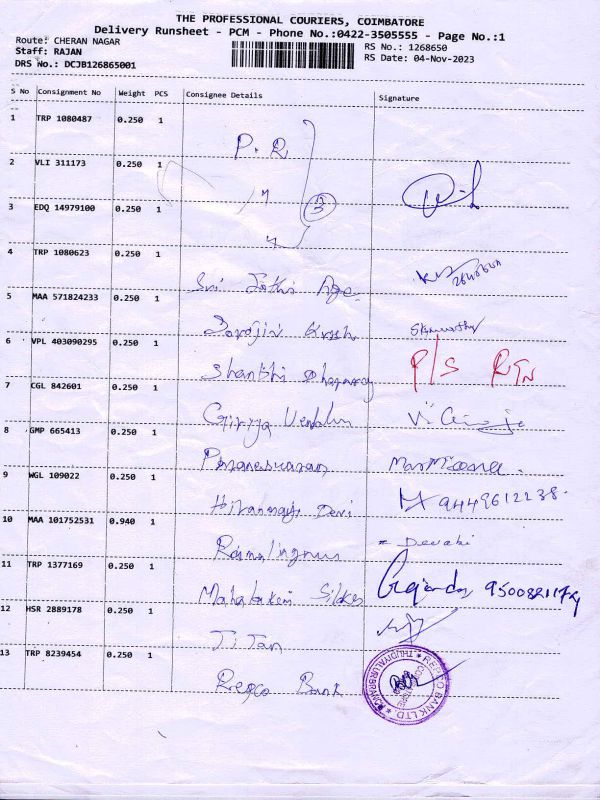 THE PROFESSIONAL COURIERS, COIMBATORE
Delivery Runsheet - PCM - Phone No.:0422-3505555 - Page No.:1
Route: CHERAN NAGAR
RS No.: 1268650
Staff: RAJAN
RS Date: 04-Nov-2023
DRS No.: DCJB126865001
S No Consignment No Weight PCS Consignee Details Signature
1 TRP 1080487 0.250 1 P. R
2 VLI 311173 0.250 1 "
3 EDQ 14979100 0.250 1 "
4 TRP 1080623 0.250 1 Sri Jothi Age
5 MAA 571824233 0.250 1
6 VPL 403090295 0.250 1 Shanthi P/S RTN
7 CGL 842601 0.250 1 Girija
8 GMP 665413 0.250 1 Parameswaran
9 WGL 109022 0.250 1 Hiranmayi Devi
10 MAA 101752531 0.940 1 Devaki
11 TRP 1377169 0.250 1
12 HSR 2889178 0.250 1 Titan
13 TRP 8239454 0.250 1 Repco Bank
REPCO BANK LTD.